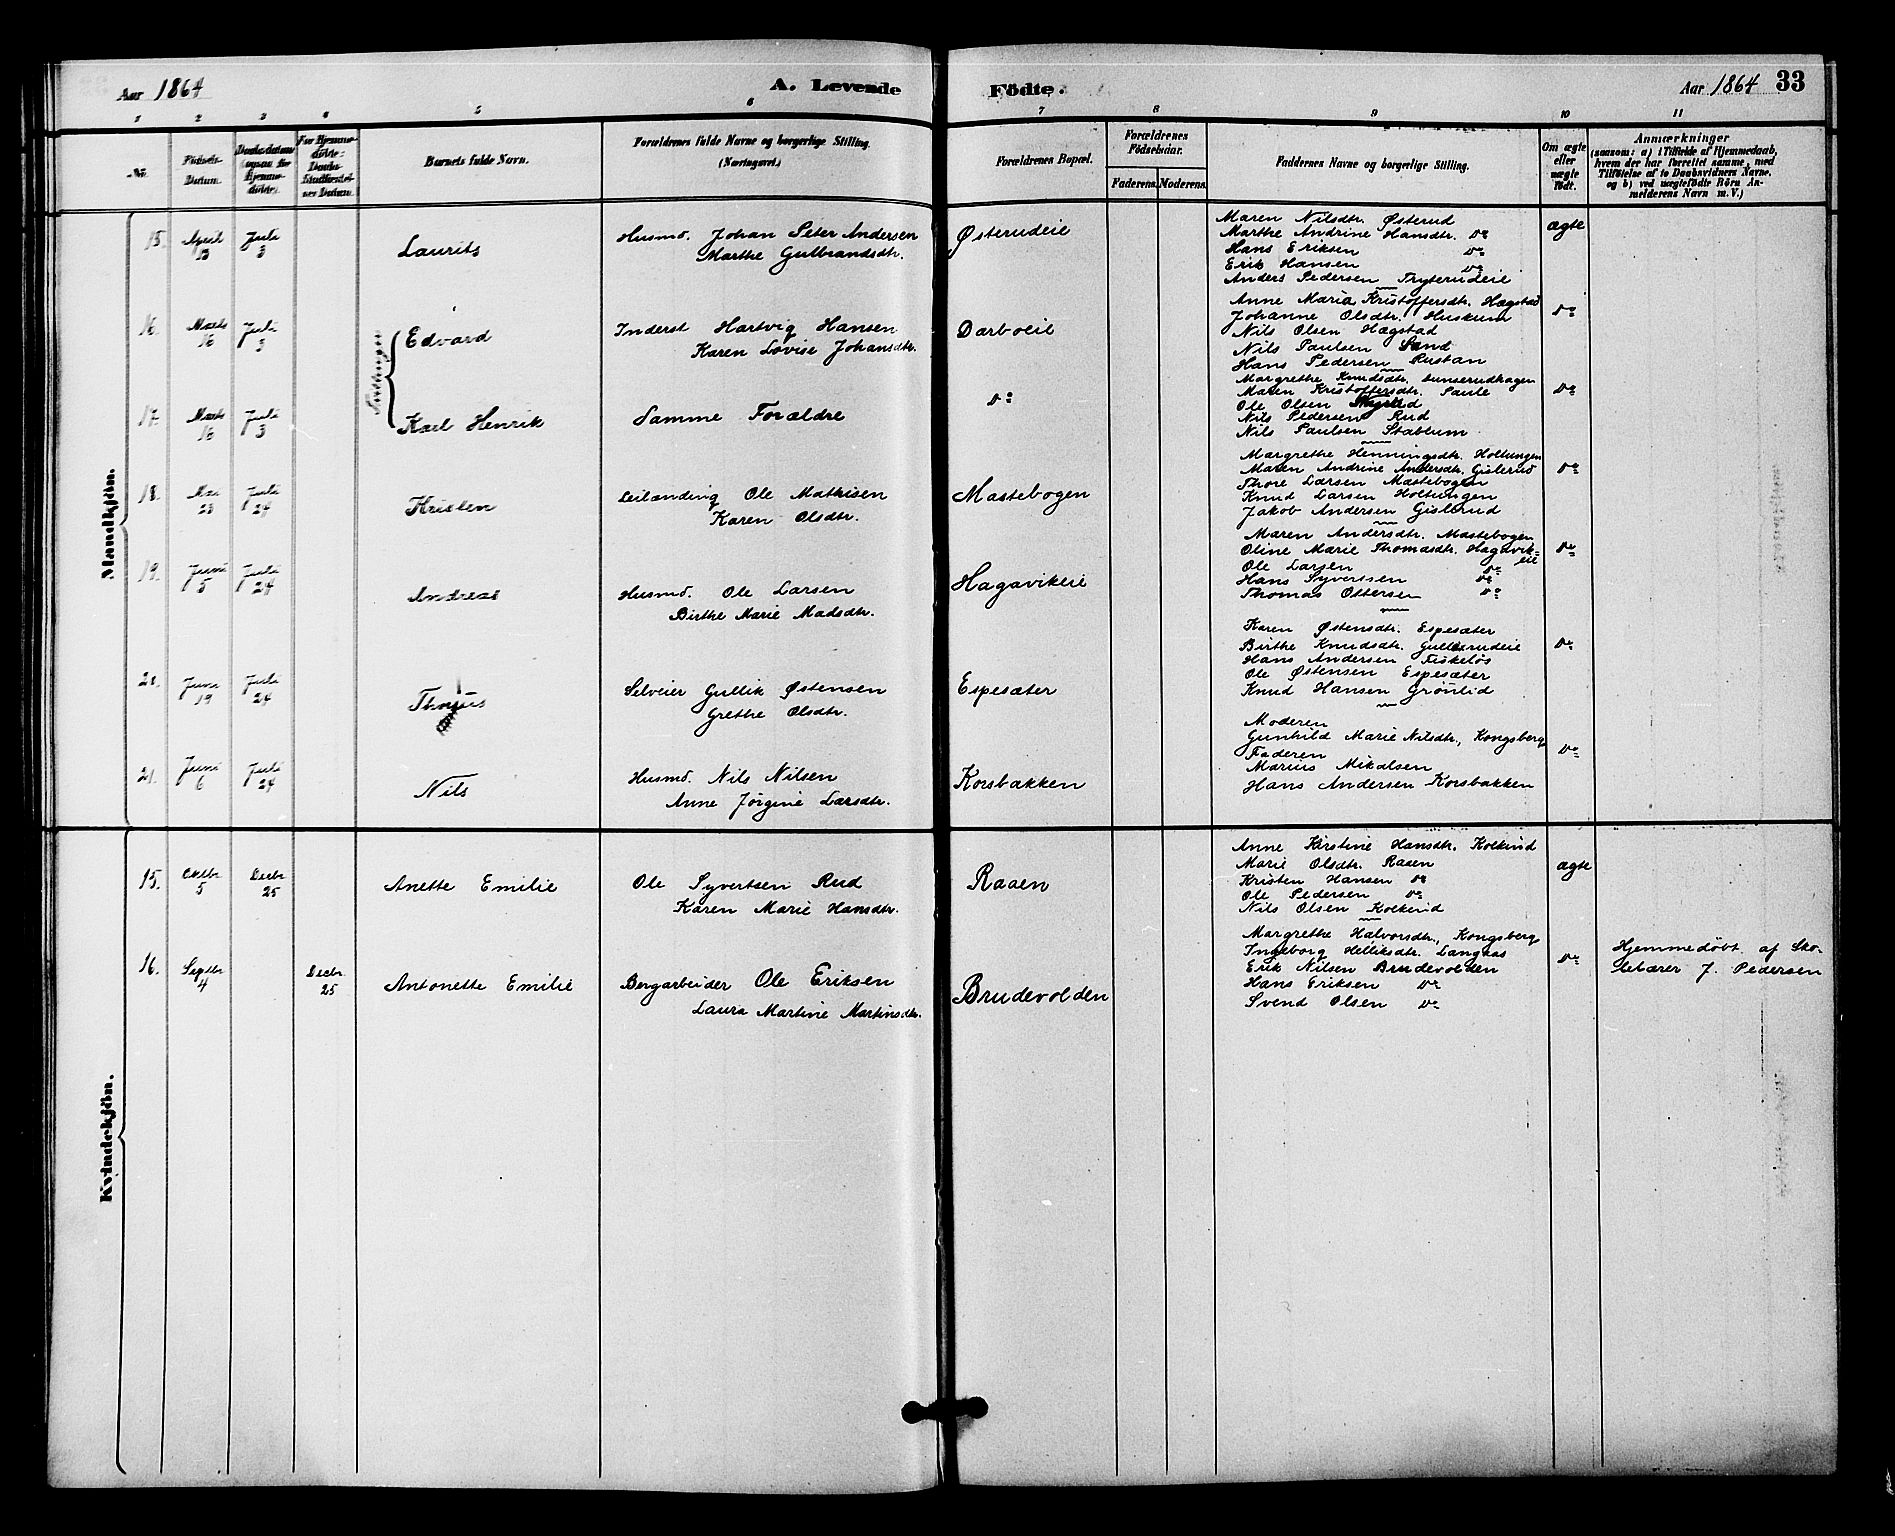 Aar 1864
A. Levende Födte.
Aar 1864 33
1 2 3 4 5 6 7 8 9 10 11
No.
Födsels-Datum.
Barnets fulde Navn.
Forældrenes fulde Navne og borgerlige Stilling.
(Næringsvei.)
Forældrenes Bopæl.
Forældrenes Födselsaar.
Faderens. Moderens.
Faddernes Navne og borgerlige Stilling.
Om ægte eller uægte födt.
Anmærkninger
(saasom: a) i Tilfælde af Hjemmedaab,
hvem der har forrettet samme, med
Tilföielse af to Daabsvidners Navne,
og b) ved uægtefödte Börn An-
melderens Navn m. V.)
Mandkjön.
15. April 13 Juli 3
Laurits
Husmd. Johan Peter Andersen
Marthe Gulbrandsdtr.
Østerudeie
Maren Nilsdtr. Østerud
Marthe Andrine Hansdtr. do
Hans Eriksen do
Erik Hansen do
Anders Pedersen Tryterudeie
ægte
16. Marts 16 Juli 3
Tvillinger
Edvard
Inderst Hartvig Hansen
Karen Lovise Johansdtr.
Darboeie
Anne Maria Kristoffersdtr. Hægstad
Johanne Olsdtr. Huskum
Nils Olsen Hægstad
Nils Paulsen Sand
Hans Pedersen Rustan
do
17. Marts 16 Juli 3
Karl Henrik
Samme Forældre
do
Margrethe Knudsdtr. Lunserudhagen
Maren Kristoffersdtr. Saule
Ole Olsen
Nils Pedersen Rud
Nils Paulsen Stablum
do
18. Mai 23 Juli 24
Kristen
Leilænding Ole Mathisen
Karen Olsdtr.
Mastebogen
Margrethe Henningsdtr. Holtungen
Maren Andrine Andersdtr. Gislerud
Thore Larsen Mastebogen
Knud Larsen Holtungen
Jakob Andersen Gislerud
do
19. Juni 5 Juli 24
Andreas
Husmd. Ole Larsen
Birthe Marie Madsdtr.
Hagavikeie
Maren Andersdtr. Mastebogen
Oline Marie Thomasdtr. Hagavik-
eie
Ole Larsen do
Hans Syvertsen do
Thomas Ottersen do
do
20. Juni 19 Juli 24
Selveier Gullik Østensen
Grethe Olsdtr.
Espesæter
Karen Østensdtr. Espesæter
Birthe Knudsdtr. Gullerudeie
Hans Andersen Fiskeløs
Ole Østensen Espesæter
Knud Hansen Grønlid
do
21. Juni 6 Juli 24
Nils
Husmd. Nils Nilsen
Anne Jørgine Larsdtr.
Korsbakken
Moderen
Gunhild Marie Nilsdtr., Kongsberg
Faderen
Marius Mikalsen
Hans Andersen Korsbakken
do
Kvindekjön.
15. Octbr 5 Decbr 25
Anette Emilie
Ole Syvertsen Rud
Karen Marie Hansdtr.
Raaen
Anne Kirstine Hansdtr. Kolkind
Marie Olsdtr. Raaen
Kristen Hansen do
Ole Pedersen do
Nils Olsen Kolkind
ægte
16. Septbr 4 Decbr. 25
Antonette Emilie
Bergarbeider Ole Eriksen
Laura Martine Martinsdtr.
Brudevolden
Margrethe Halvorsdtr., Kongsberg
Ingeborg Helliksdtr. Langaas
Erik Nilsen Brudevolden
Hans Eriksen do
Svend Olsen do
do
Hjemmedøbt af Sko-
lelærer J. Pedersen